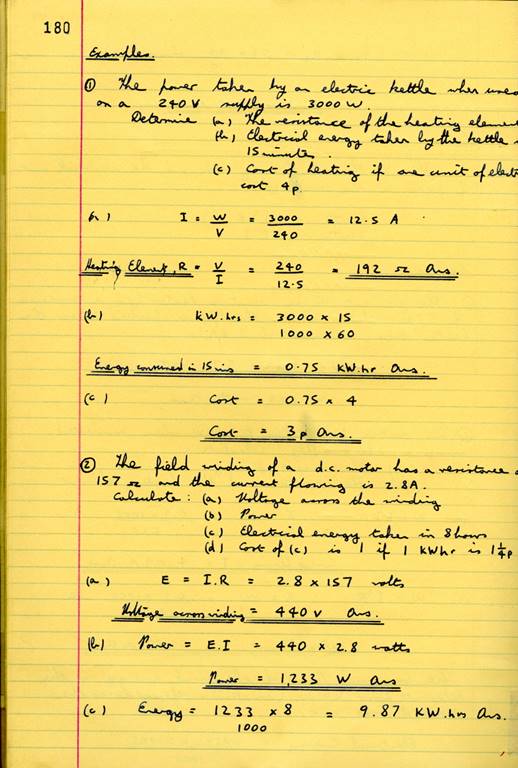 180
Examples.
① The power taken by an electric kettle when used
on a 240 V supply is 3000 W.
Determine (a) The resistance of the heating element
(b) Electrical energy taken by the kettle
15 minutes.
(c) Cost of heating if one unit of elect
cost 4p.
a) I = W/V = 3000/240 = 12.5 A
Heating Element, R = V/I = 240/12.5 = 192 Ω Ans.
(b) KW.hrs = 3000 x 15
1000 x 60
Energy consumed in 15 mins = 0.75 KW.hr Ans.
(c) Cost = 0.75 x 4
Cost = 3p Ans.
② The field winding of a d.c. motor has a resistance
157 Ω and the current flowing is 2.8A.
Calculate: (a) Voltage across the winding
(b) Power
(c) Electrical energy taken in 8 hours
(d) Cost of (c) is 1 if 1 KWhr is 1¼p
(a) E = I.R = 2.8 x 157 volts
Voltage across winding = 440 V Ans.
(b) Power = E.I = 440 x 2.8 watts
Power = 1,233 W Ans
(c) Energy = 1233 x 8 / 1000 = 9.87 KW.hrs Ans.